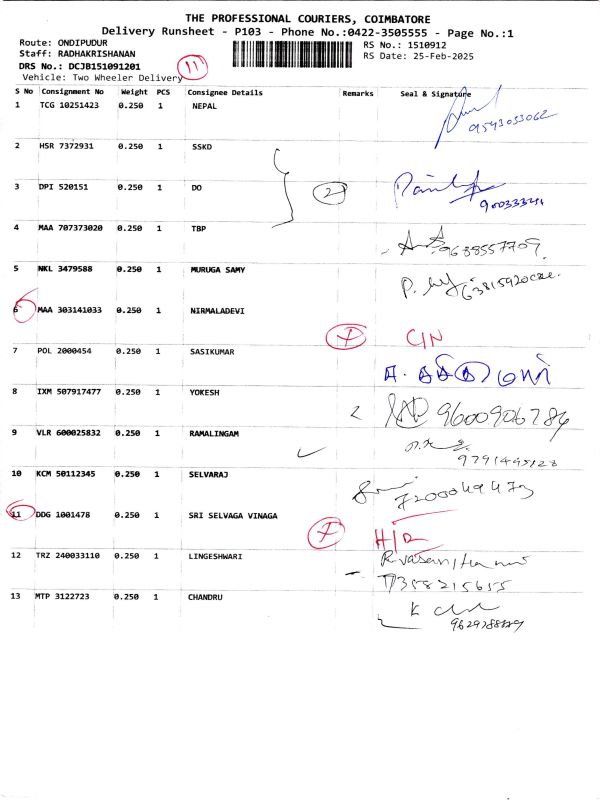 THE PROFESSIONAL COURIERS, COIMBATORE
Delivery Runsheet - P103 - Phone No.:0422-3505555 - Page No.:1
Route: ONDIPUDUR
Staff: RADHAKRISHANAN
DRS No.: DCJB151091201
Vehicle: Two Wheeler Delivery
11
RS No.: 1510912
RS Date: 25-Feb-2025
S No Consignment No Weight PCS Consignee Details Remarks Seal & Signature
1 TCG 10251423 0.250 1 NEPAL
9543053062
2 HSR 7372931 0.250 1 SSKD
3 DPI 520151 0.250 1 DO 2
4 MAA 707373020 0.250 1 TBP
9638557709
5 NKL 3479588 0.250 1 MURUGA SAMY
6 MAA 303141033 0.250 1 NIRMALADEVI
C/N
7 POL 2000454 0.250 1 SASIKUMAR
8 IXM 507917477 0.250 1 YOKESH
9600906784
9 VLR 600025832 0.250 1 RAMALINGAM
9791445128
10 KCM 50112345 0.250 1 SELVARAJ
7200049473
11 DDG 1001478 0.250 1 SRI SELVAGA VINAGA
H/R
12 TRZ 240033110 0.250 1 LINGESHWARI
7358215655
13 MTP 3122723 0.250 1 CHANDRU